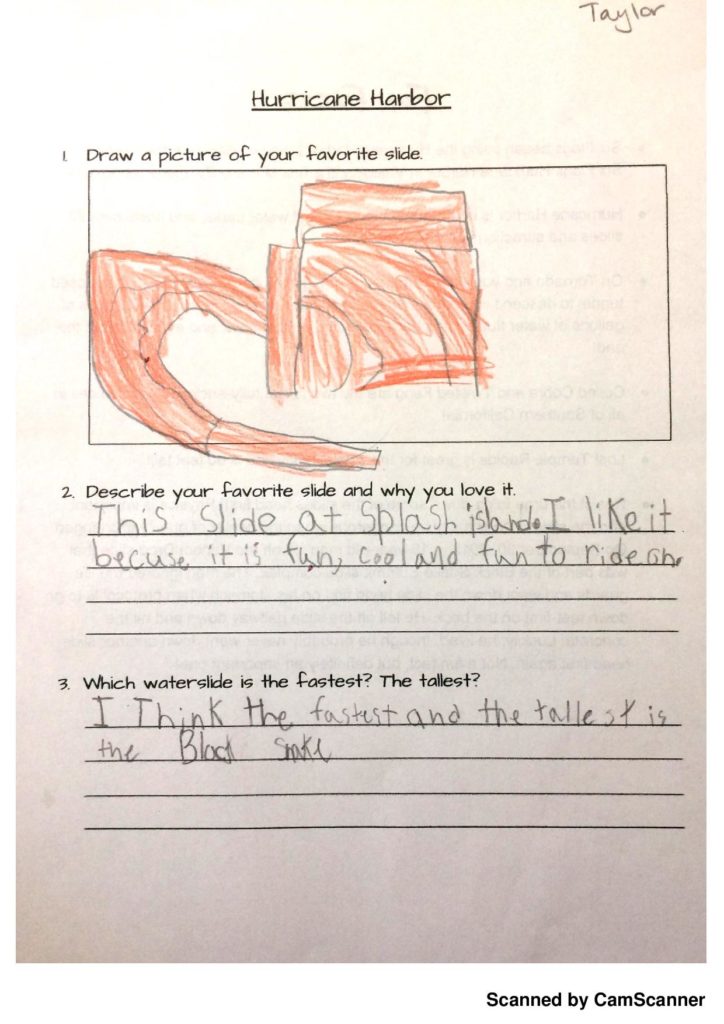 Taylor
Hurricane Harbor
1. Draw a picture of your favorite slide.
2. Describe your favorite slide and why you love it.
This slide at Splash island. I like it
becuse it is fun, cool and fun to ride on.
3. Which waterslide is the fastest? The tallest?
I Think the fastest and the tallest is
the Black Snake
Scanned by CamScanner